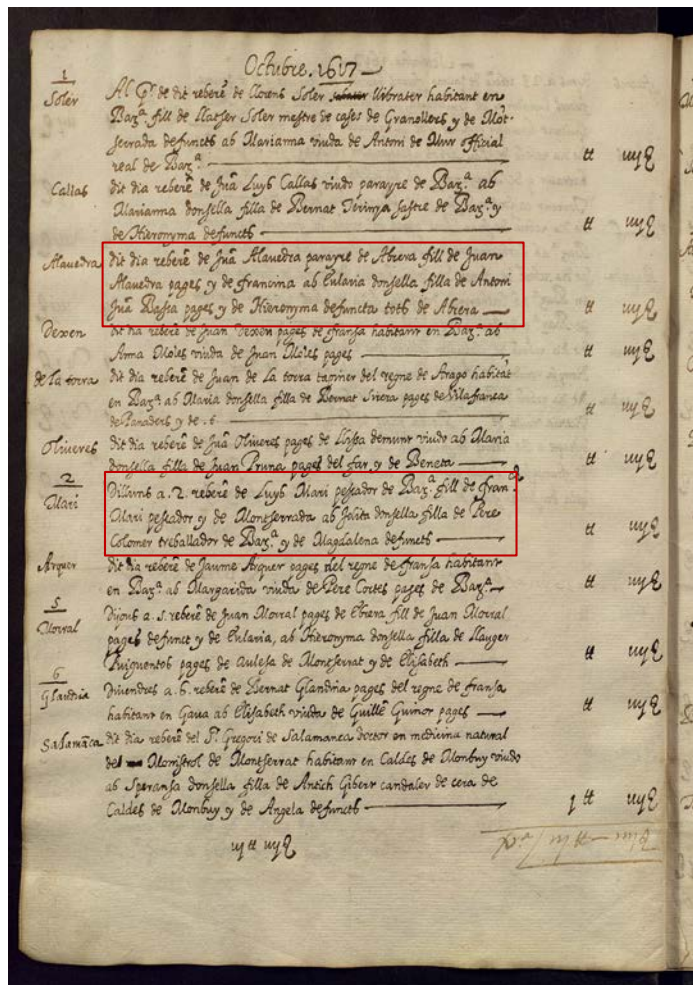 Octubre. 1617
1
Soler
Al p.r de dit reberē de Llorens Soler llibrater habitant en
Bar.ᵃ fill de Llatser Soler mestre de cases de Granollers y de Mōt-
serrada defuncts ab Marianna viuda de Antoni de Mur official
real de Bar.ᵃ
Callas
dit dia reberē de Juā Luys Callas viudo parayre de Bar.ᵃ ab
Marianna donsella filla de Bernat sastre de Bar.ᵃ y
de Hieronyma defuncts
Alavedra
dit dia reberē de Juā Alavedra parayre de Abrera fill de Juan
Alavedra pages y de francina ab Eularia donsella filla de Antoni
Juā Bassa pages y de Hieronyma defuncta tots de Abrera
Dexen
dit dia reberē de Juan Dexen pages de fransa habitant en Bar.ᵃ ab
Anna Moles viuda de Juan Moles pages
de la torra
dit dia reberē de Juan de La torra taginer del regne de Arago habitāt
en Bar.ᵃ ab Maria donsella filla de Bernat pages de Vilafranca
de Panaders y de .t.
Oliveres
dit dia reberē de Juā Oliveres pages de Llyssa demunt viudo ab Maria
donsella filla de Juan Pruna pages del far y de Beneta
2
Mari
Dilluns a .2. reberē de Luys Mari pescador de Bar.ᵃ fill de fran.ᶜ
Mari pescador y de Montserrada ab Jolita donsella filla de Pere
Colomer treballador de Bar.ᵃ y de Magdalena defuncts
Arquer
dit dia reberē de Jaume Arquer pages del regne de fransa habitant
en Bar.ᵃ ab Margarida viuda de Pere Cortes pages de Bar.ᵃ
5
Morral
Dijous a .5. reberē de Juan Morral pages de Ebrera fill de Juan Morral
pages defunct y de Eularia, ab Hieronyma donsella filla de Llauger
Puiguentos pages de Aulesa de Montserrat y de Elisabeth
6
Glaudria
Divendres a .6. reberē de Bernat Glandria pages del regne de fransa
habitant en Gava ab Elisabeth viuda de Guillē Guinor pages
Salamāca
dit dia reberē del S.r Gregori de Salamanca doctor en medicina natural
del Monistrol de Montserrat habitant en Caldes de Monbuy viudo
ab Speransa donsella filla de Antich Gibert candaler de cera de
Caldes de Monbuy y de Angela defuncts